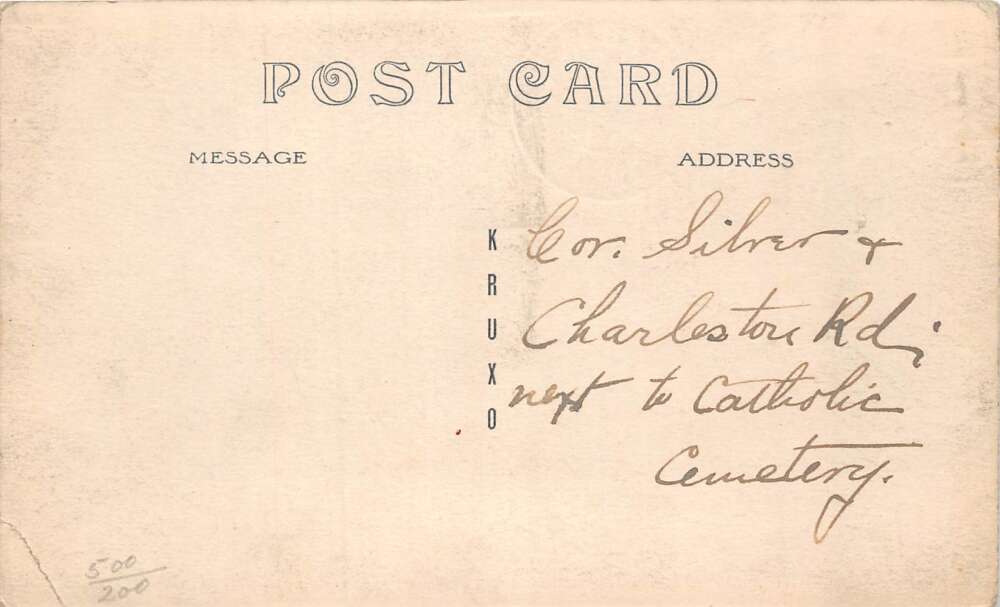 POST CARD
MESSAGE
ADDRESS
KRUXO
Cor. Silver &
Charleston Rd;
next to Catholic
Cemetery.
500
200